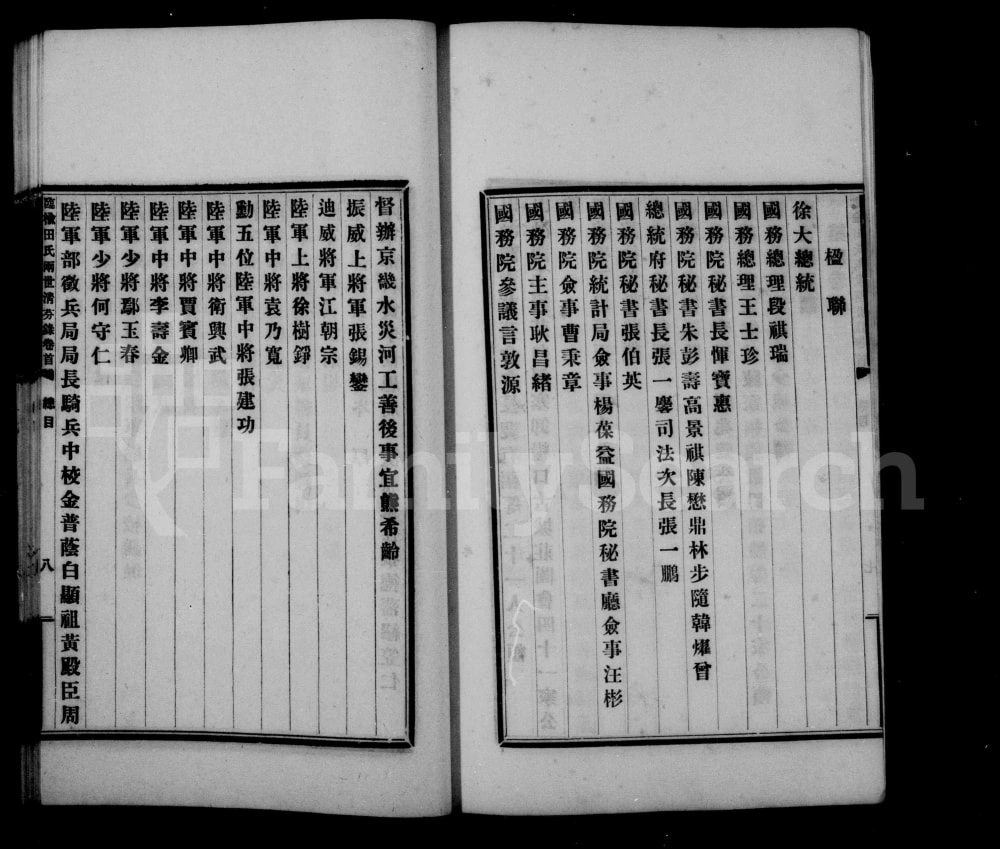 楹聯
徐大總統
國務總理段祺瑞
國務總理王士珍
國務院秘書長惲寶惠
國務院秘書朱彭壽高景祺陳懋鼎林步隨韓燿曾
總統府秘書長張一麐司法次長張一鵬
國務院秘書張伯英
國務院統計局僉事楊葆益國務院秘書廳僉事汪彬
國務院僉事曹秉章
國務院主事耿昌緒
國務院參議言敦源
督辦京畿水災河工善後事宜熊希齡
振威上將軍張錫鑾
迪威將軍江朝宗
陸軍上將徐樹錚
陸軍中將袁乃寬
勳五位陸軍中將張建功
陸軍中將衛興武
陸軍中將賈賓卿
陸軍中將李壽金
陸軍少將鄢玉春
陸軍少將何守仁
陸軍部徵兵局局長騎兵中校金普蔭白顯祖黃殿臣周
臨榆田氏兩世清芬錄卷首 總目 八
FamilySearch